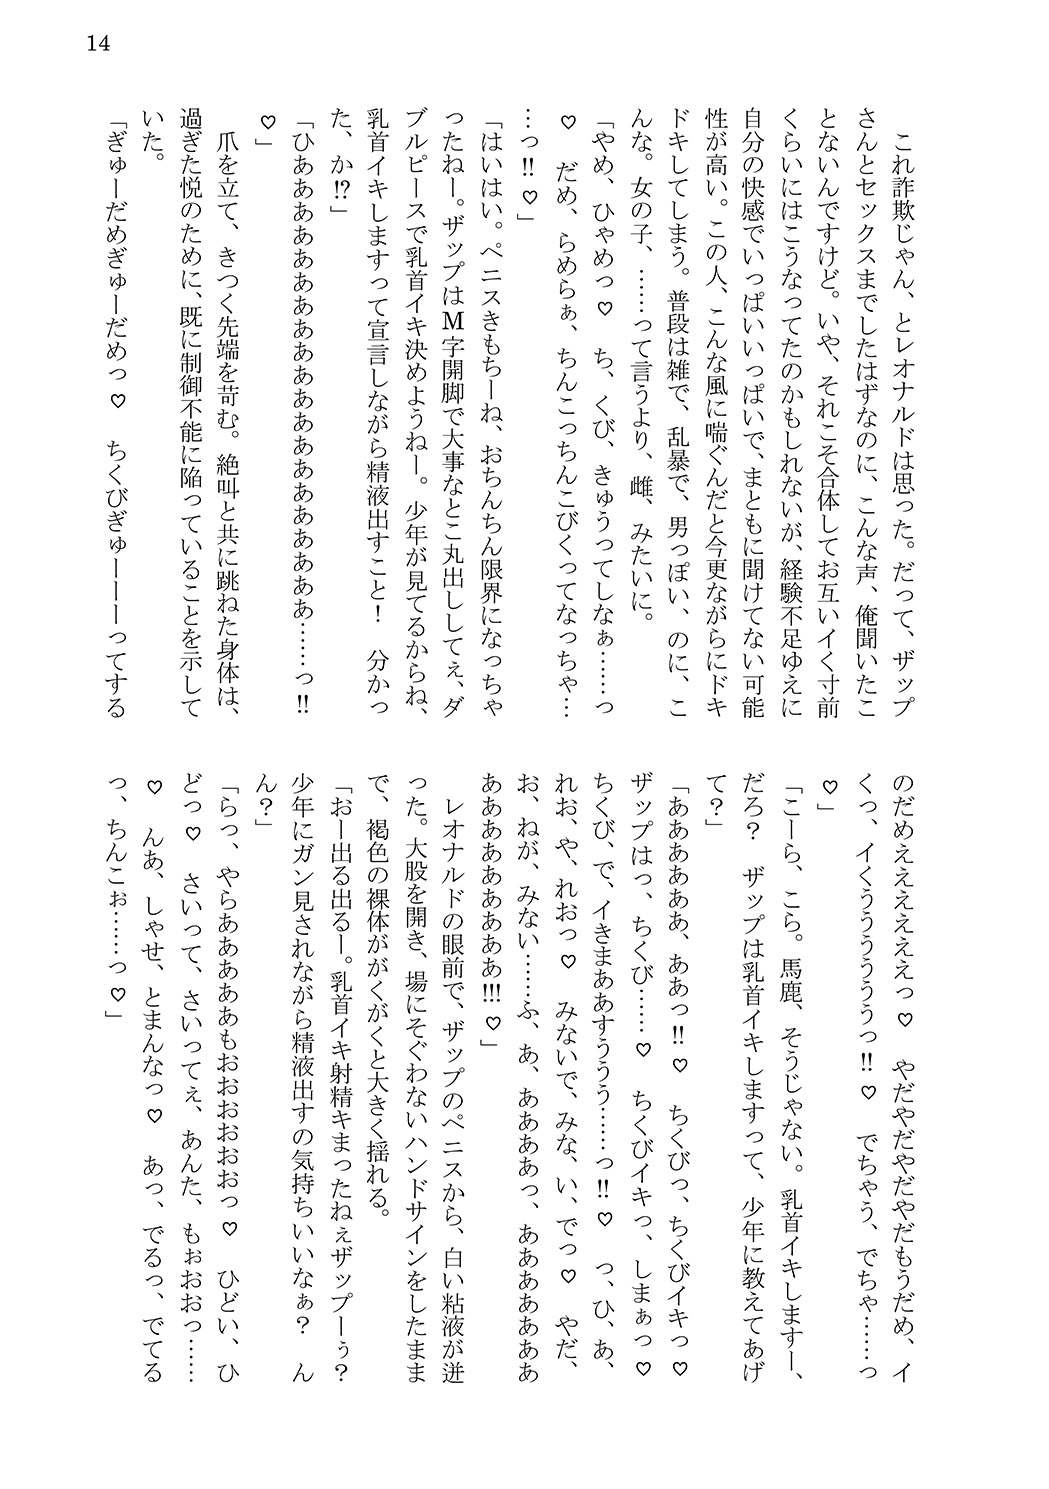 14
　これ詐欺じゃん、とレオナルドは思った。だって、ザップ
さんとセックスまでしたはずなのに、こんな声、俺聞いたこ
とないんですけど。いや、それこそ合体してお互いイく寸前
くらいにはこうなってたのかもしれないが、経験不足ゆえに
自分の快感でいっぱいいっぱいで、まともに聞けてない可能
性が高い。この人、こんな風に喘ぐんだと今更ながらにドキ
ドキしてしまう。普段は雑で、乱暴で、男っぽい、のに、こ
んな。女の子、……って言うより、雌、みたいに。
「やめ、ひゃめっ♡　ち、くび、きゅうってしなぁ……っ
♡　だめ、らめらぁ、ちんこっちんこびくってなっちゃ…
…っ!!♡」
「はいはい。ペニスきもちーね、おちんちん限界になっちゃ
ったねー。ザップはM字開脚で大事なとこ丸出ししてぇ、ダ
ブルピースで乳首イキ決めようねー。少年が見てるからね、
乳首イキしますって宣言しながら精液出すこと！　分かっ
た、か!?」
「ひあああああああああああああああああああああ……っ!!
♡」
　爪を立て、きつく先端を苛む。絶叫と共に跳ねた身体は、
過ぎた悦のために、既に制御不能に陥っていることを示して
いた。
「ぎゅーだめぎゅーだめっ♡　ちくびぎゅーーーってする
のだめえええええっ♡　やだやだやだやだもうだめ、イ
くっ、イくうううううっ!!♡　でちゃう、でちゃ……っ
♡」
「こーら、こら。馬鹿、そうじゃない。乳首イキしますー、
だろ？　ザップは乳首イキしますって、少年に教えてあげ
て？」
「ああああああ、ああっ!!♡　ちくびっ、ちくびイキっ♡
ザップはっ、ちくび……♡　ちくびイキっ、しまぁっ♡
ちくび、で、イきまああすううう……っ!!♡　っ、ひ、あ、
れお、や、れおっ♡　みないで、みな、い、でっ♡　やだ、
お、ねが、みない……ふ、あ、ああああっ、ああああああああ
ああああああああああ!!!♡」
　レオナルドの眼前で、ザップのペニスから、白い粘液が迸
った。大股を開き、場にそぐわないハンドサインをしたまま
で、褐色の裸体ががくがくと大きく揺れる。
「おー出る出るー。乳首イキ射精キまったねぇザップーぅ？
少年にガン見されながら精液出すの気持ちいいなぁ？　ん
ん？」
「らっ、やらああああああもおおおおおおっ♡　ひどい、ひ
どっ♡　さいって、さいってぇ、あんた、もぉおおっ……
♡　んあ、しゃせ、とまんなっ♡　あっ、でるっ、でてる
っ、ちんこぉ……っ♡」